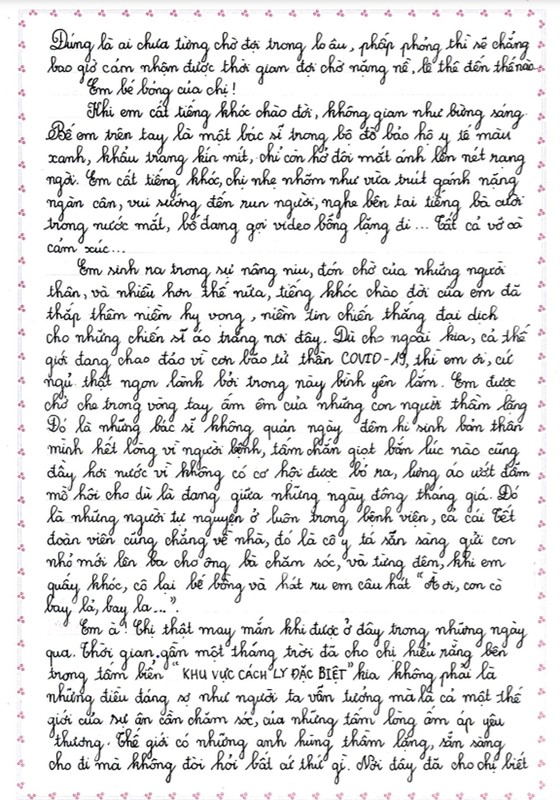 Đúng là ai chưa từng chờ đợi trong lo âu, phấp phỏng thì sẽ chẳng
bao giờ cảm nhận được thời gian đợi chờ nặng nề, lê thê đến thế nào.
Em bé bỏng của chị!
Khi em cất tiếng khóc chào đời, không gian như bừng sáng.
Bế em trên tay là một bác sĩ trong bộ đồ bảo hộ y tế màu
xanh, khẩu trang kín mít, chỉ còn hở đôi mắt ánh lên nét rạng
ngời. Em cất tiếng khóc, chị nhẹ nhõm như vừa trút gánh nặng
ngàn cân, vui sướng đến run người, nghe bên tai tiếng bà cười
trong nước mắt, bố đang gọi video bỗng lặng đi... Tất cả vỡ oà
cảm xúc...
Em sinh ra trong sự nâng niu, đón chờ của những người
thân, và nhiều hơn thế nữa, tiếng khóc chào đời của em đã
thắp thêm niềm hy vọng, niềm tin chiến thắng đại dịch
cho những chiến sĩ áo trắng nơi đây. Dù cho ngoài kia, cả thế
giới đang chao đảo vì cơn bão tử thần COVID-19, thì em ơi, cứ
ngủ thật ngon lành bởi trong này bình yên lắm. Em được
chở che trong vòng tay ấm êm của những con người thầm lặng
Đó là những bác sĩ không quản ngày đêm hi sinh bản thân
mình hết lòng vì người bệnh, tấm chắn giọt bắn lúc nào cũng
đầy hơi nước vì không có cơ hội được bỏ ra, lưng áo ướt đẫm
mồ hôi cho dù là đang giữa những ngày đông tháng giá. Đó
là những người tự nguyện ở luôn trong bệnh viện, cả cái Tết
đoàn viên cũng chẳng về nhà, đó là cô y tá sẵn sàng gửi con
nhỏ mới lên ba cho ông bà chăm sóc, và từng đêm, khi em
quấy khóc, cô lại bế bồng và hát ru em câu hát "À ơi, con cò
bay lả, bay la...".
Em à! Chị thật may mắn khi được ở đây trong những ngày
qua. Thời gian gần một tháng trời đã cho chị hiểu rằng bên
trong tấm biển "KHU VỰC CÁCH LY ĐẶC BIỆT" kia không phải là
những điều đáng sợ như người ta vẫn tưởng mà là cả một thế
giới của sự ân cần chăm sóc, của những tấm lòng ấm áp yêu
thương. Thế giới có những anh hùng thầm lặng, sẵn sàng
cho đi mà không đòi hỏi bất cứ thứ gì. Nơi đây đã cho chị biết